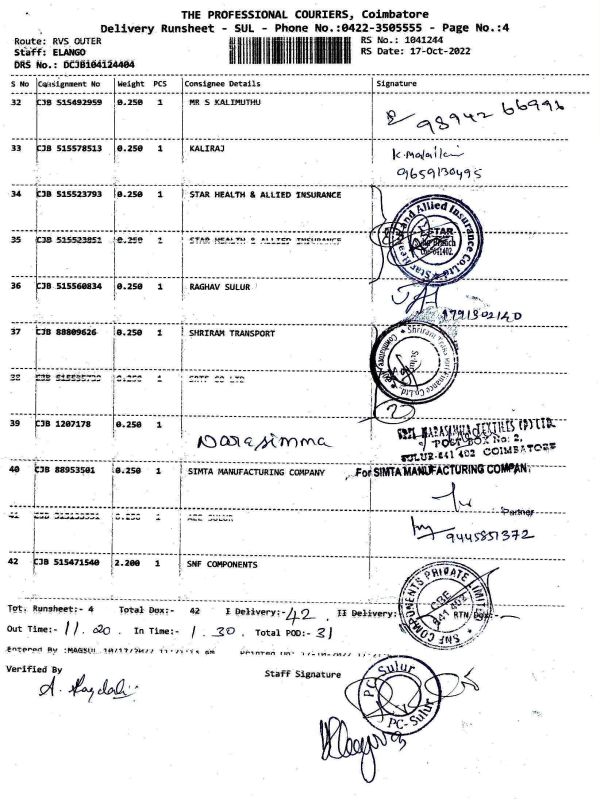 THE PROFESSIONAL COURIERS, Coimbatore
Delivery Runsheet - SUL - Phone No.:0422-3505555 - Page No.:4
Route: RVS OUTER RS No.: 1041244
Staff: ELANGO RS Date: 17-Oct-2022
DRS No.: DCJB104124404
S No Consignment No Weight PCS Consignee Details Signature
32 CJB 515492959 0.250 1 MR S KALIMUTHU
98942 66996
33 CJB 515578513 0.250 1 KALIRAJ
9659130495
34 CJB 515523793 0.250 1 STAR HEALTH & ALLIED INSURANCE
35 CJB 515523851 0.250 1 STAR HEALTH & ALLIED INSURANCE
36 CJB 515560834 0.250 1 RAGHAV SULUR
9791302140
37 CJB 88809626 0.250 1 SHRIRAM TRANSPORT
38
2
39 CJB 1207178 0.250 1
Narasimma
SRI NARASIMHA TEXTILES (P) LTD.
POST BOX No: 2,
SULUR-641 402 COIMBATORE
40 CJB 88953501 0.250 1 SIMTA MANUFACTURING COMPANY For SIMTA MANUFACTURING COMPAN
Partner
41 SULUR
9445851372
42 CJB 515471540 2.200 1 SNF COMPONENTS
SNF COMPONENTS PRIVATE LIMITED
CBE
641 402
Tot. Runsheet:- 4 Total Dox:- 42 I Delivery:- 42 II Delivery: RTN Dox:-
Out Time:- 11.20. In Time:- 1.30. Total POD:- 31
Entered By :MAGSUL 10/17/2022
Verified By Staff Signature
PC-Sulur
PC-Sulur